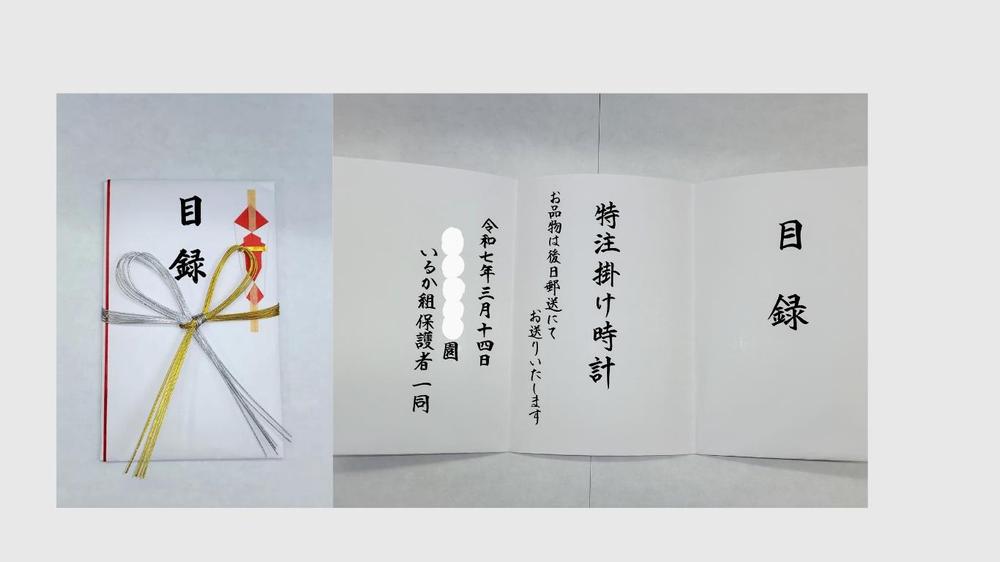 目録
目録
特注掛け時計
お品物は後日郵送にて
お送りいたします
令和七年三月十四日
園
いるか組保護者一同